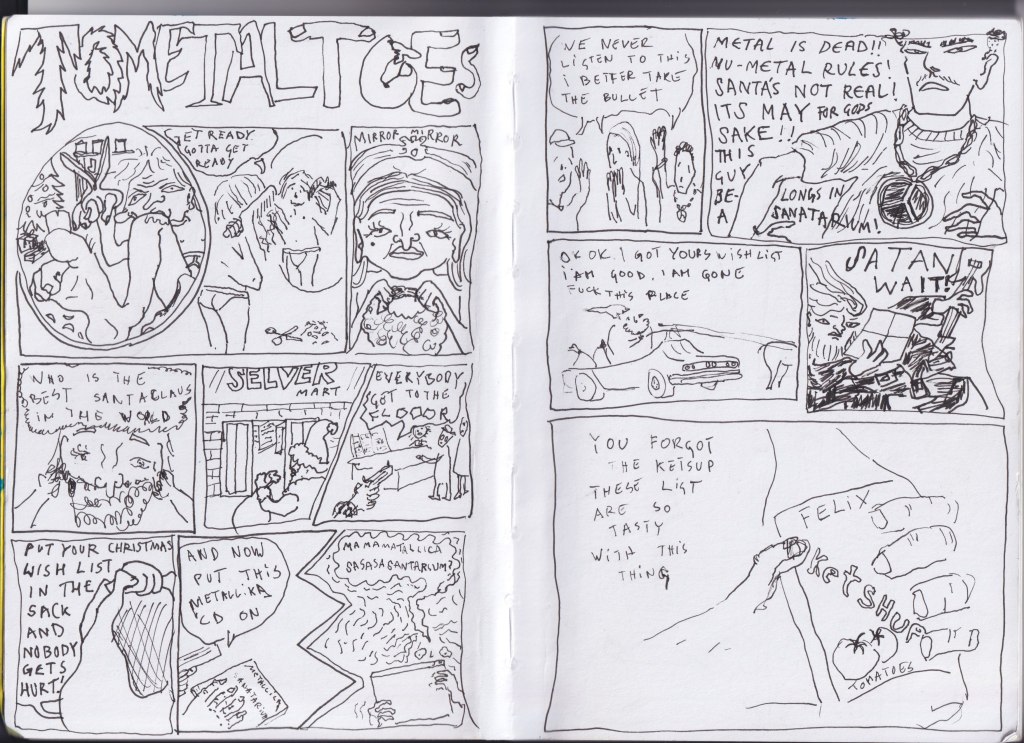 TOMETALTOES
GET READY
GOTTA GET
READY
MIRROR MIRROR
WHO IS THE
BEST SANTACLAUS
IN THE WORLD
SELVER
MART
EVERYBODY
GOT TO THE
FLOOOR
PUT YOUR CHRISTMAS
WISH LIST
IN THE
SACK
AND
NOBODY
GETS
HURT!
AND NOW
PUT THIS
METALLIKA
CD ON
METALLICA
SANATARIUM
MAMAMATALLICA
SASASASANTARIUM?
WE NEVER
LISTEN TO THIS
I BETTER TAKE
THE BULLET
METAL IS DEAD!!
NU-METAL RULES!
SANTA'S NOT REAL!
ITS MAY FOR GODS
SAKE!!
THIS
GUY
BE-
LONGS IN
A
SANATARIUM!
OK OK. I GOT YOURS WISH LIST
I AM GOOD, I AM GONE
FUCK THIS PLACE
SATAN
WAIT!
YOU FORGOT
THE KETSUP
THESE LIST
ARE SO
TASTY
WITH THIS
THING
FELIX
KETSHUP
TOMATOES